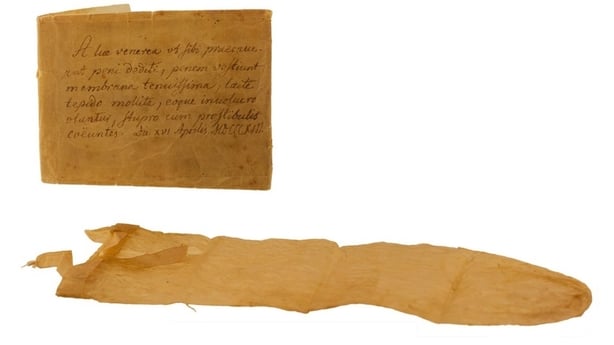 A lue venerea ut sibi praecave-
ant peni dediti, penem vestiunt
membrana tenuissima, lacte
tepido mollite, eoque involucro
utuntur, stupro cum prostibulis
coëuntes. Die XVI Aprilis